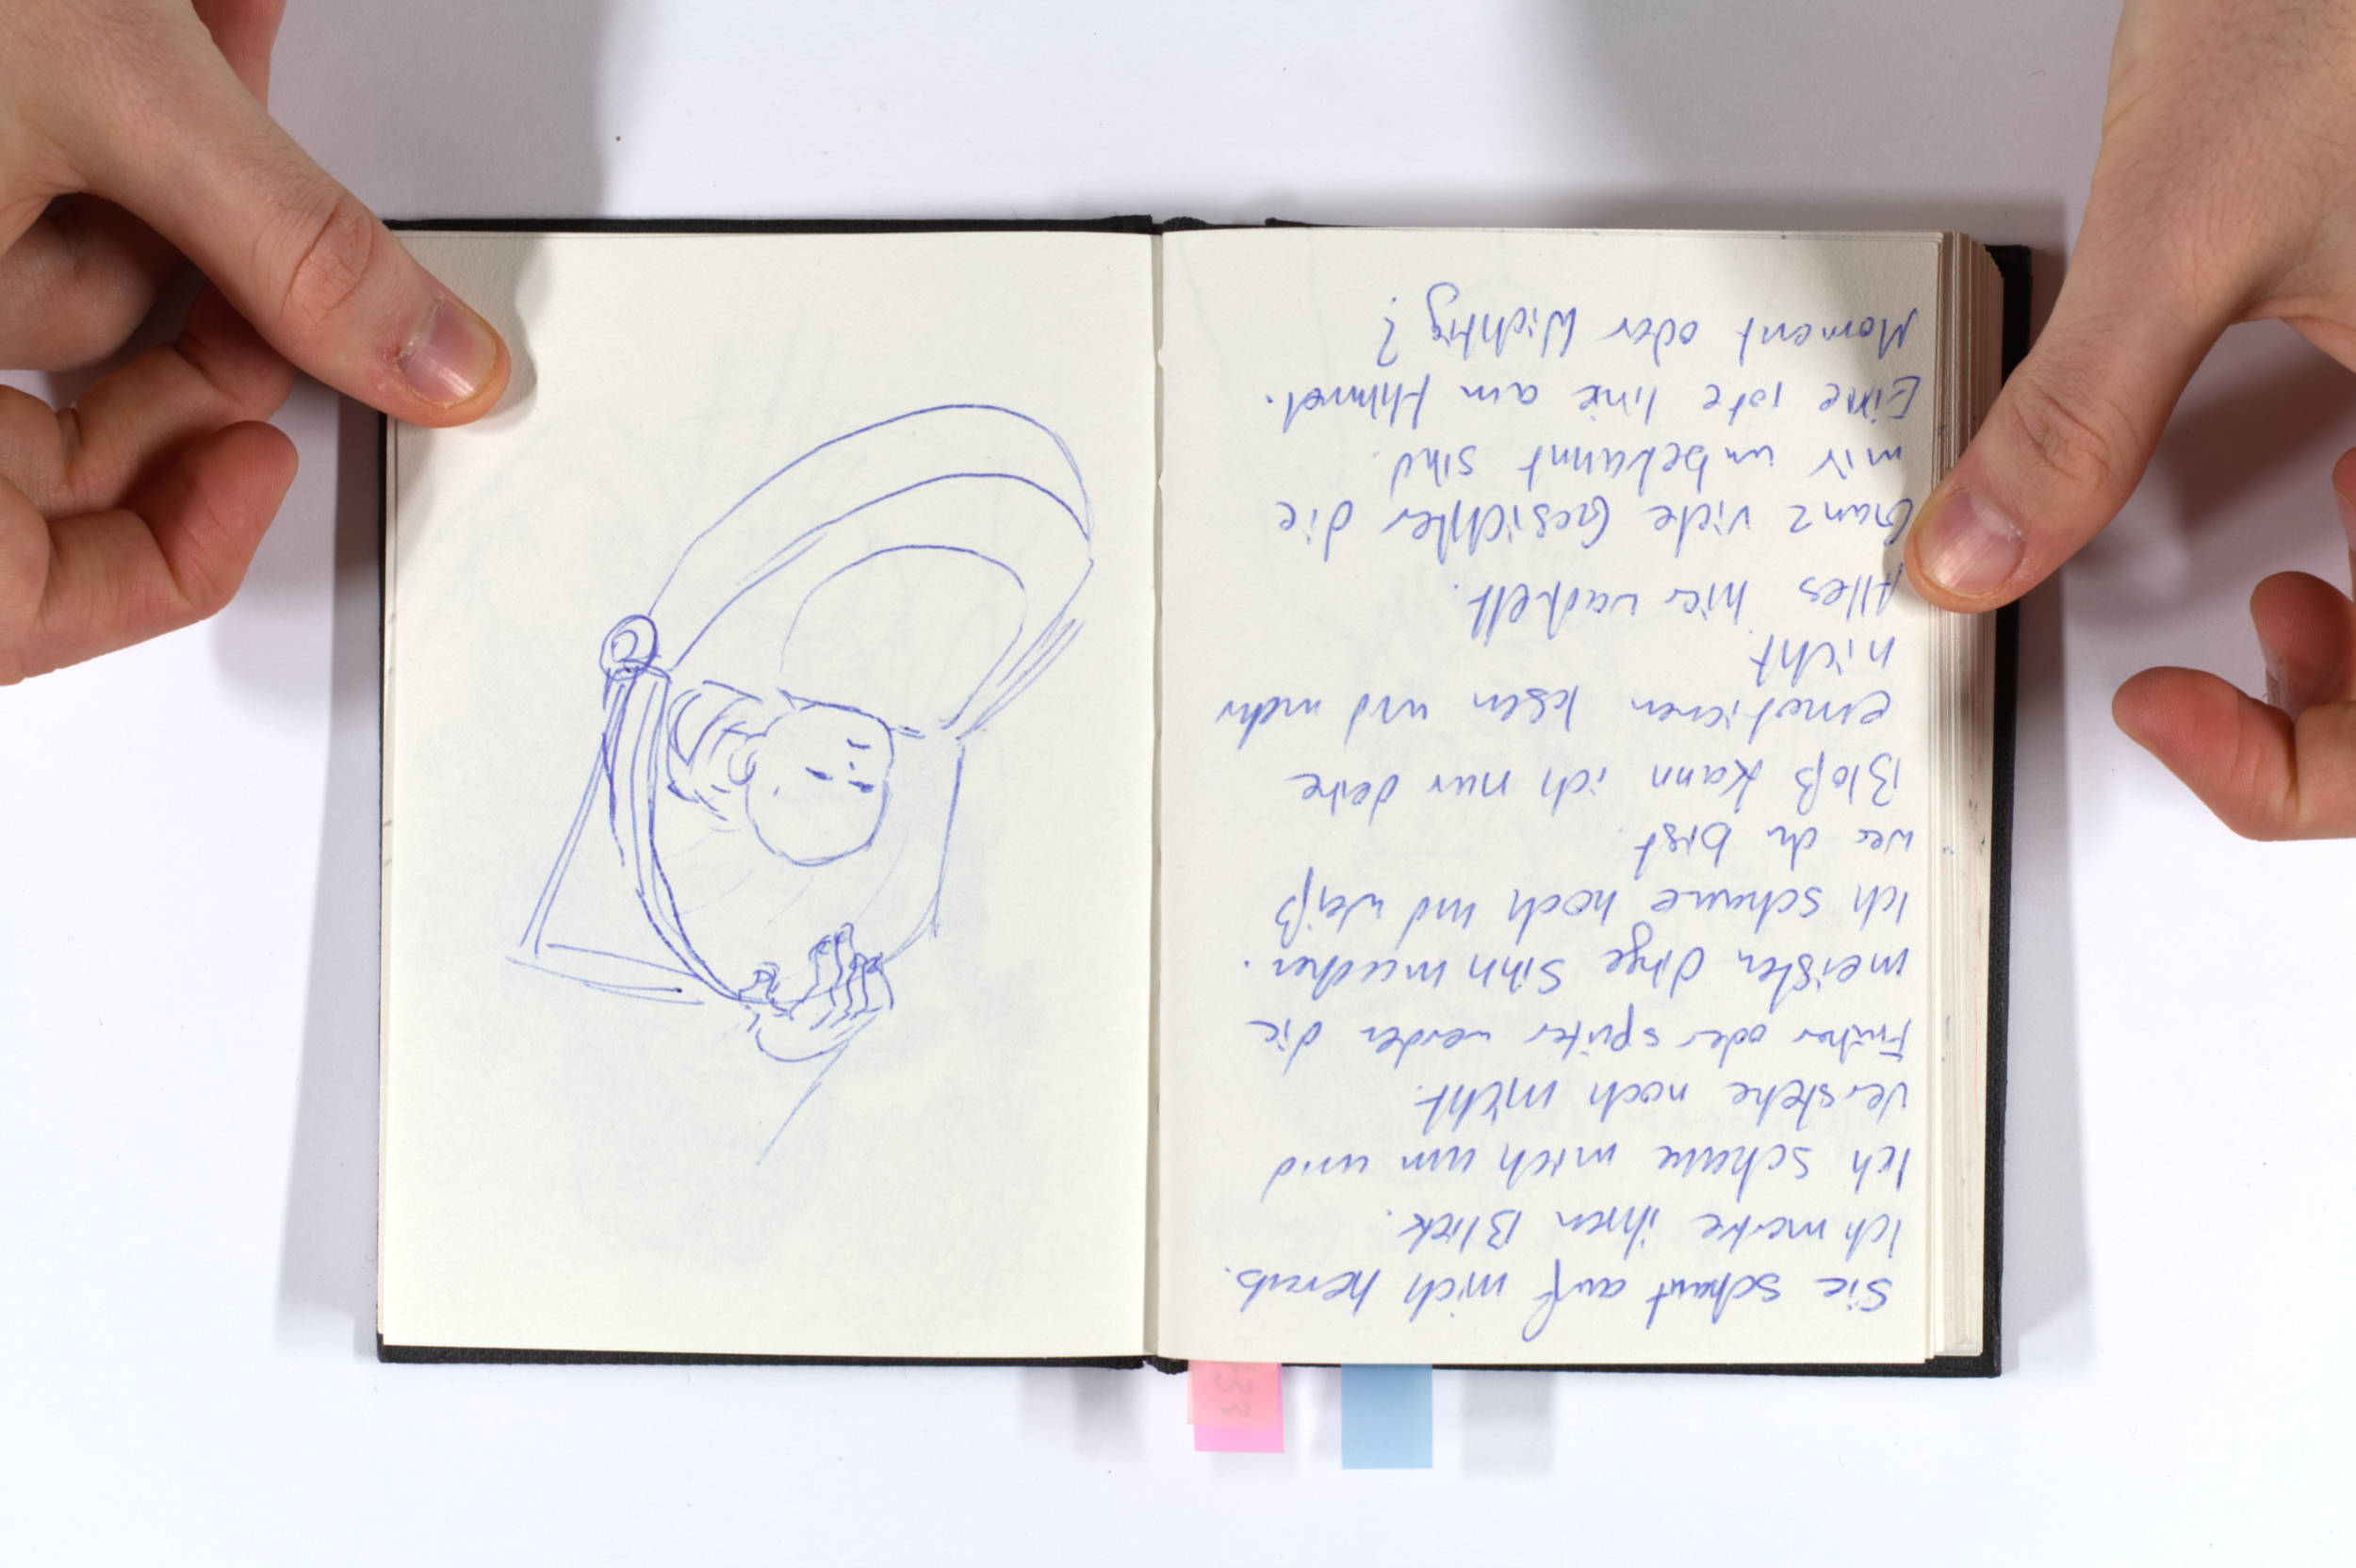 Sie schaut auf mich herab.
Ich merke ihren Blick.
Ich schaue mich um und
verstehe noch nicht.
Früher oder später werden die
meisten Dinge Sinn machen.
Ich schaue hoch und weiß
wer du bist.
Bloß kann ich nur deine
emotionen lesen und mehr
nicht.
Alles hier wackelt.
Ganz viele Gesichter die
mir unbekannt sind.
Eine rote linie am Himmel.
Moment oder Wichtig?
33